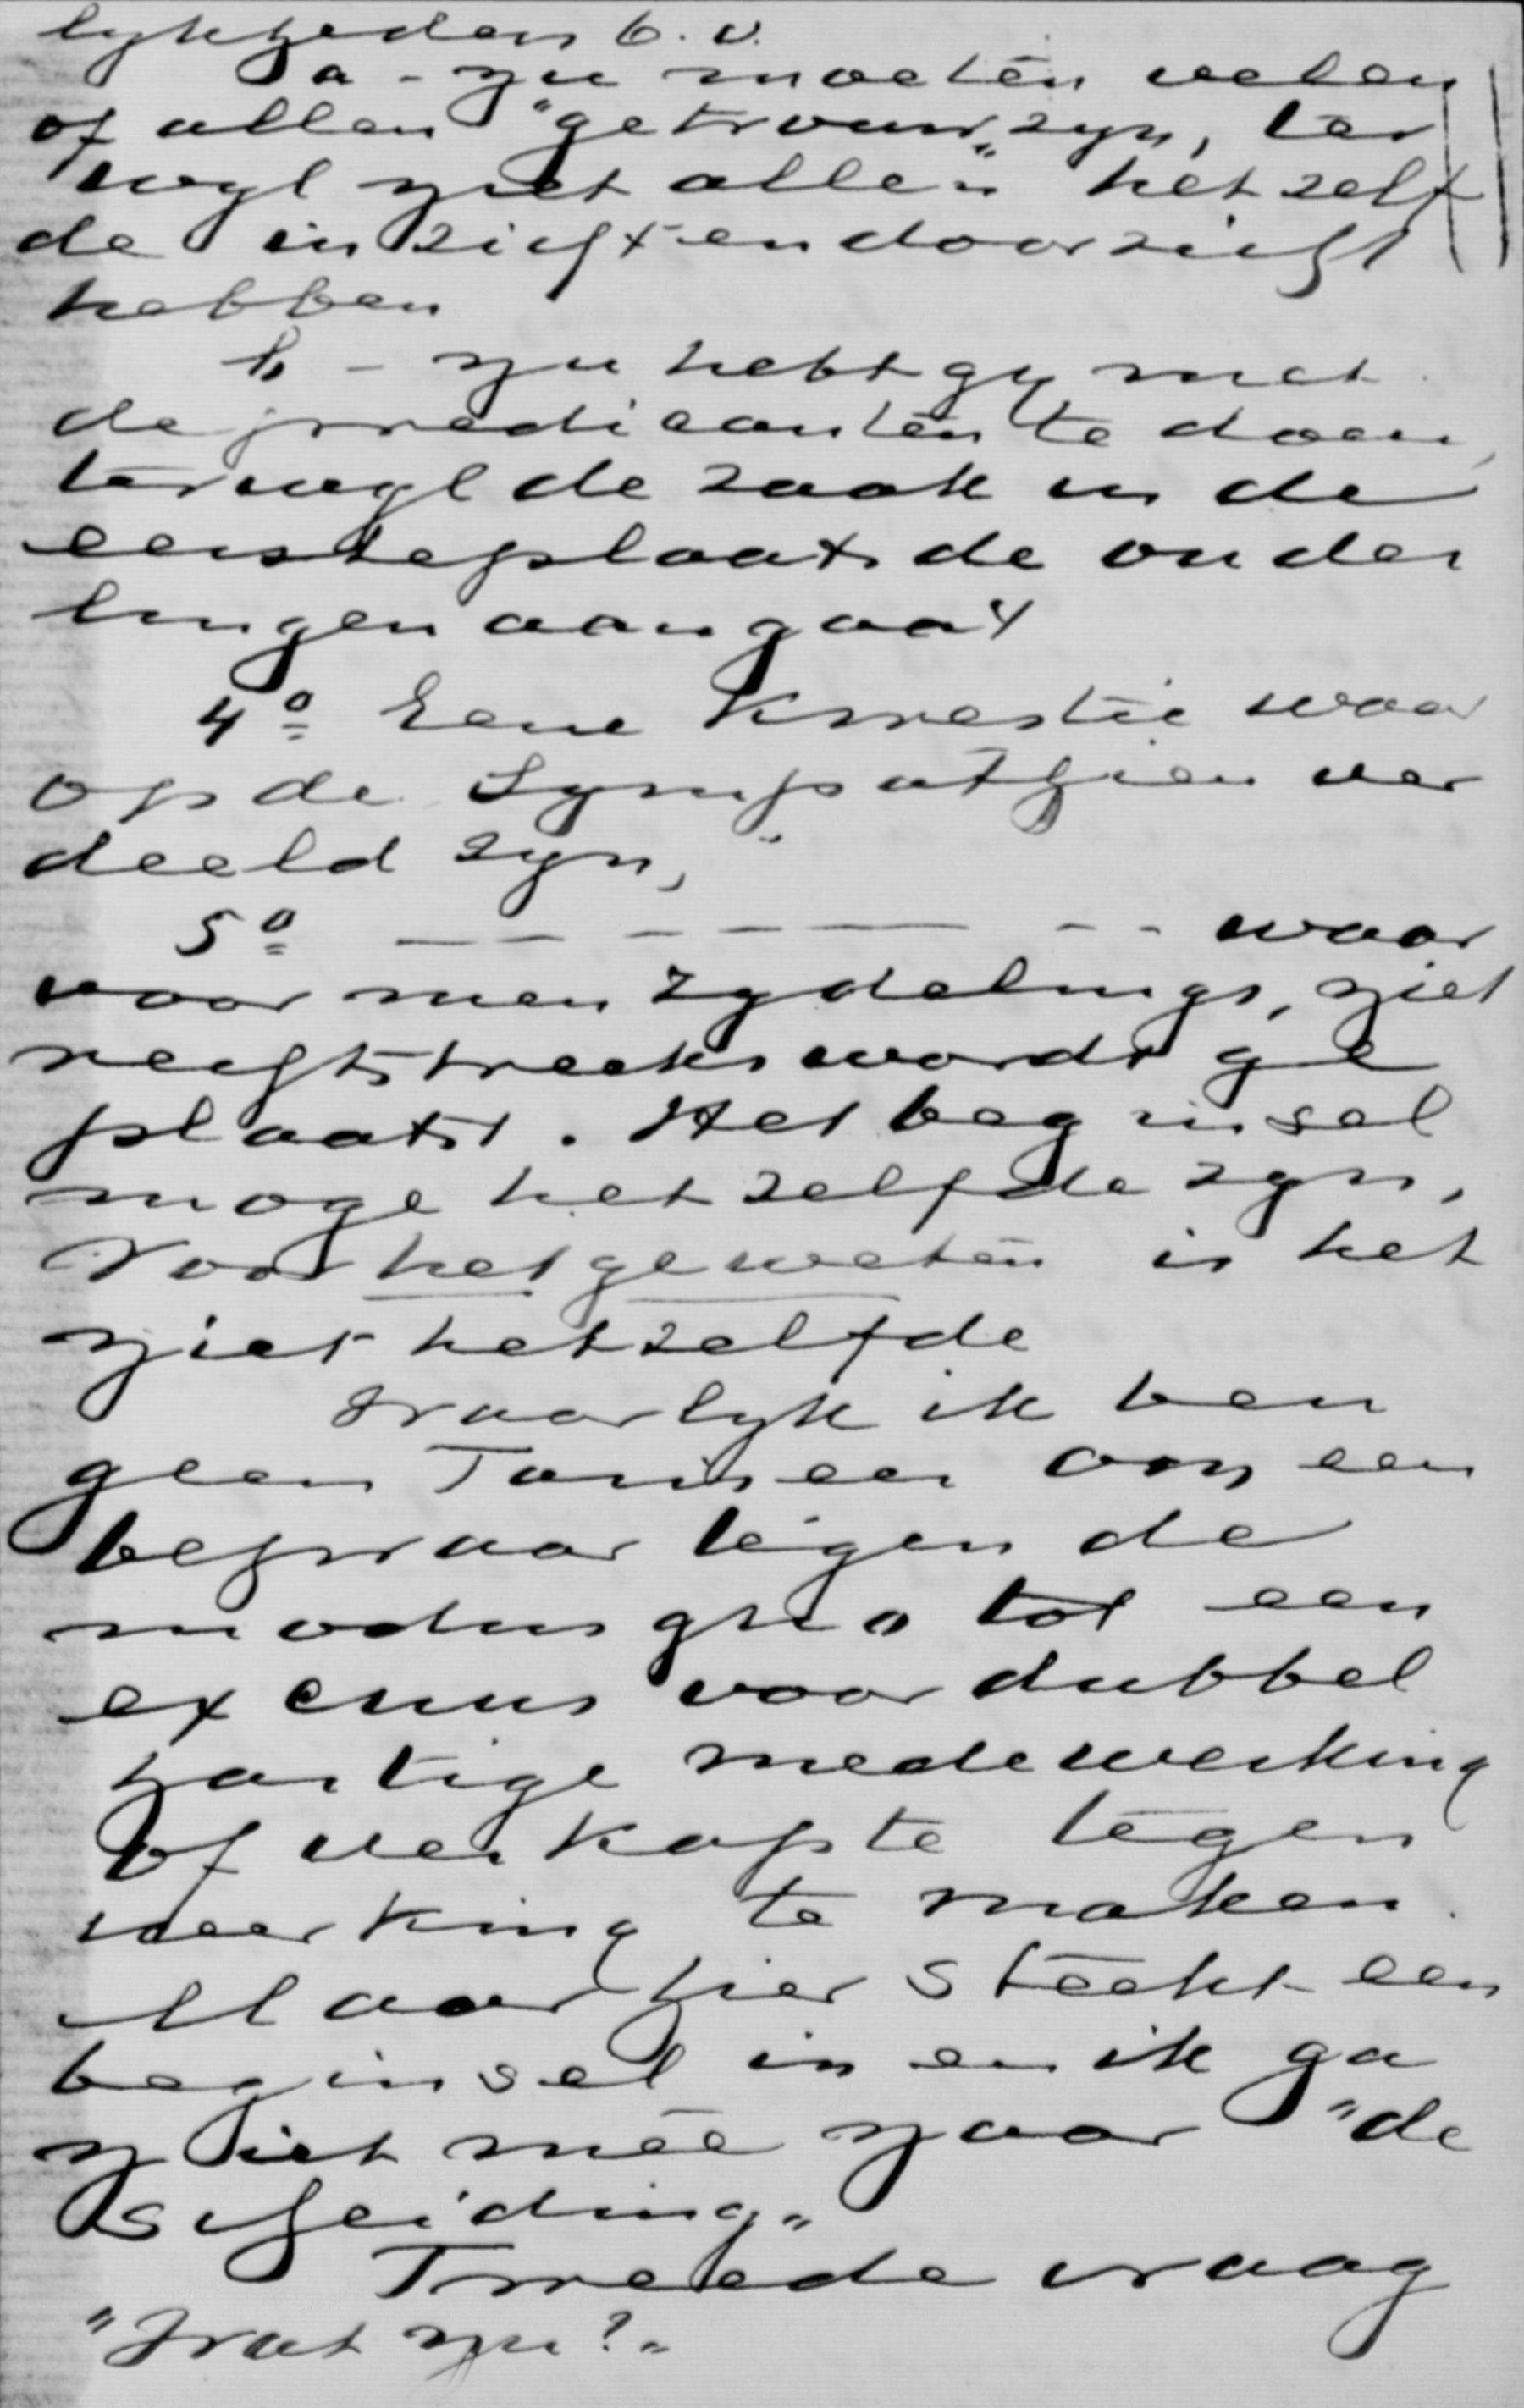 lykheden b.v.
a - nu moeten velen
of allen "getrouw" zyn, ter
wyl niet allen hetzelf
de inzicht en doorzicht
hebben
b - nu hebt gy met
de predicanten te doen,
terwyl de zaak in de
eerste plaats de ouder
lingen aangaat
4o Eene Kwestie waar
op de Sympathien ver
deeld zyn,
5o - - - - - - - waar
voor men zydelings, niet
rechtstreeks wordt ge
plaatst. Het beginsel
moge hetzelfde zyn,
Voor het geweten is het
niet hetzelfde
Waarlyk ik ben
geen om een
bezwaar tegen de
modus quo tot een
excuus voor dubbel
hartige medewerking
of verkapte tegen
werking te maken.
Maar hier steekt een
beginsel in en ik ga
niet mee naar "de
scheiding"
Tweede vraag
"Wat nu?"